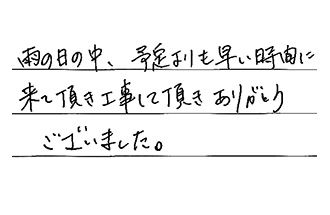 雨の日の中、予定よりも早い時間に
来て頂き工事して頂きありがとう
ございました。